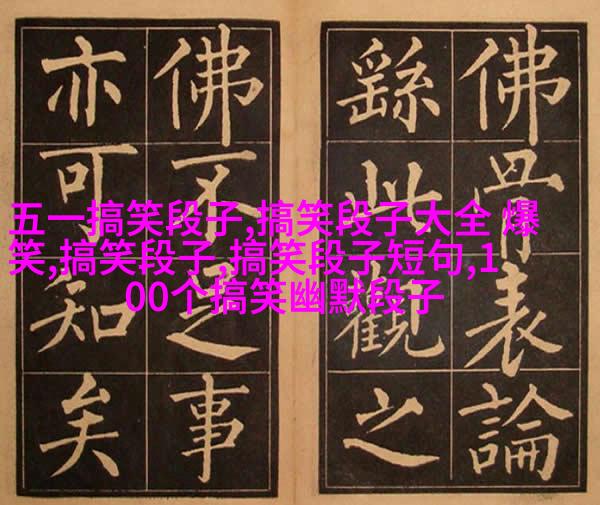 佛骨表論
繇此觀之
佛不足事
亦可知矣
五一搞笑段子,搞笑段子大全 爆
笑,搞笑段子 ,搞笑段子短句,1
00个搞笑幽默段子